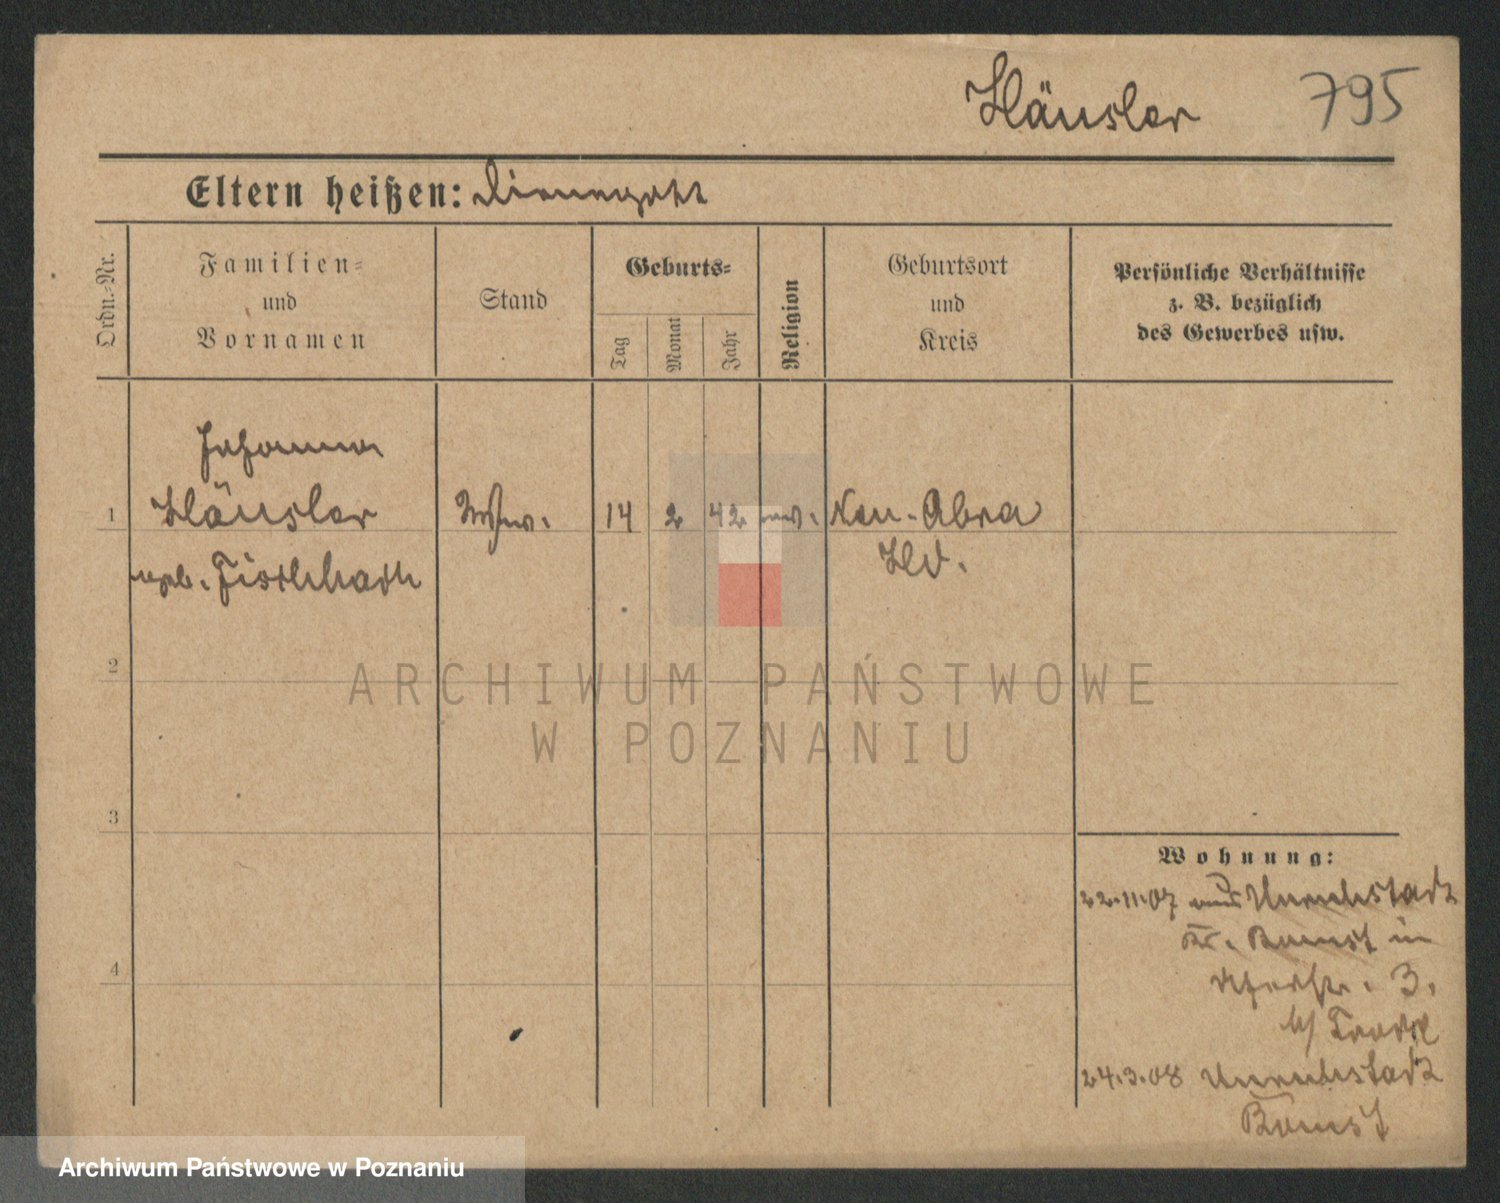 Häusler 795
Eltern heißen:
Ordn.-Nr.
Familien-
und
Vornamen
Stand
Geburts-
Tag
Monat
Jahr
Religion
Geburtsort
und
Kreis
Persönliche Verhältnisse
z. B. bezüglich
des Gewerbes usw.
Johanna
1 Häusler Wwe. 14 2 42 ev. Neu-Obra
geb.
2
3
4
Wohnung:
22.11.07 aus Unruhstadt
Kr. Bomst in
3.
b/
24.3.08 Unruhstadt
Bomst
ARCHIWUM PAŃSTWOWE
W POZNANIU
Archiwum Państwowe w Poznaniu